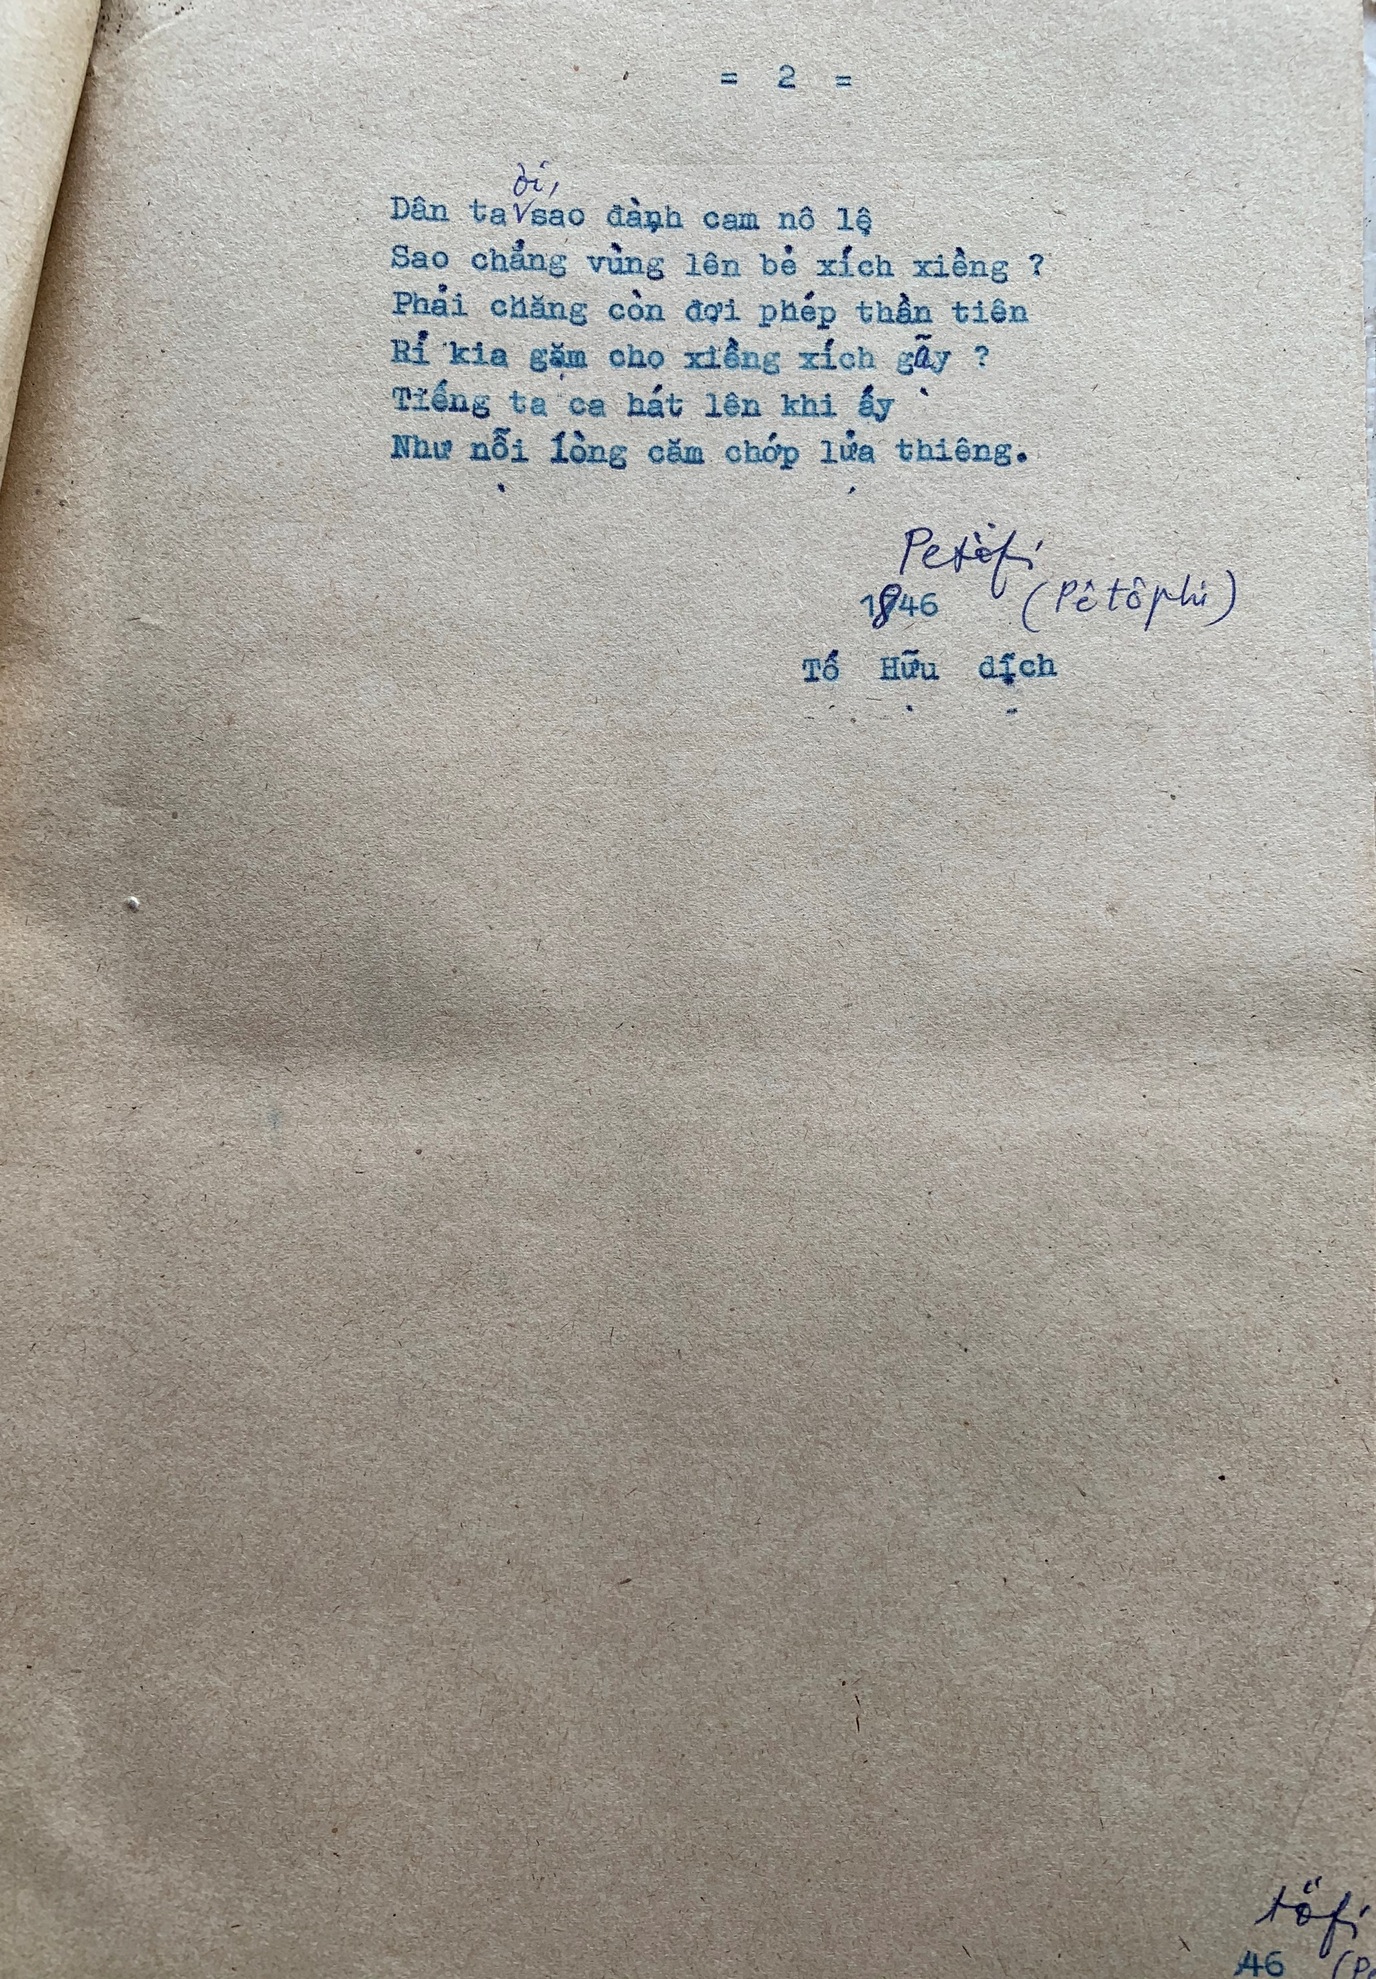 = 2 =
ời,
Dân ta sao đành cam nô lệ
Sao chẳng vùng lên bẻ xích xiềng ?
Phải chăng còn đợi phép thần tiên
Rỉ kia gặm cho xiềng xích gãy ?
Tiếng ta ca hát lên khi ấy
Như nỗi lòng căm chớp lửa thiêng.
Petöfi
1846 (Pêtôphi)
Tố Hữu dịch
töfi
46 (Pê